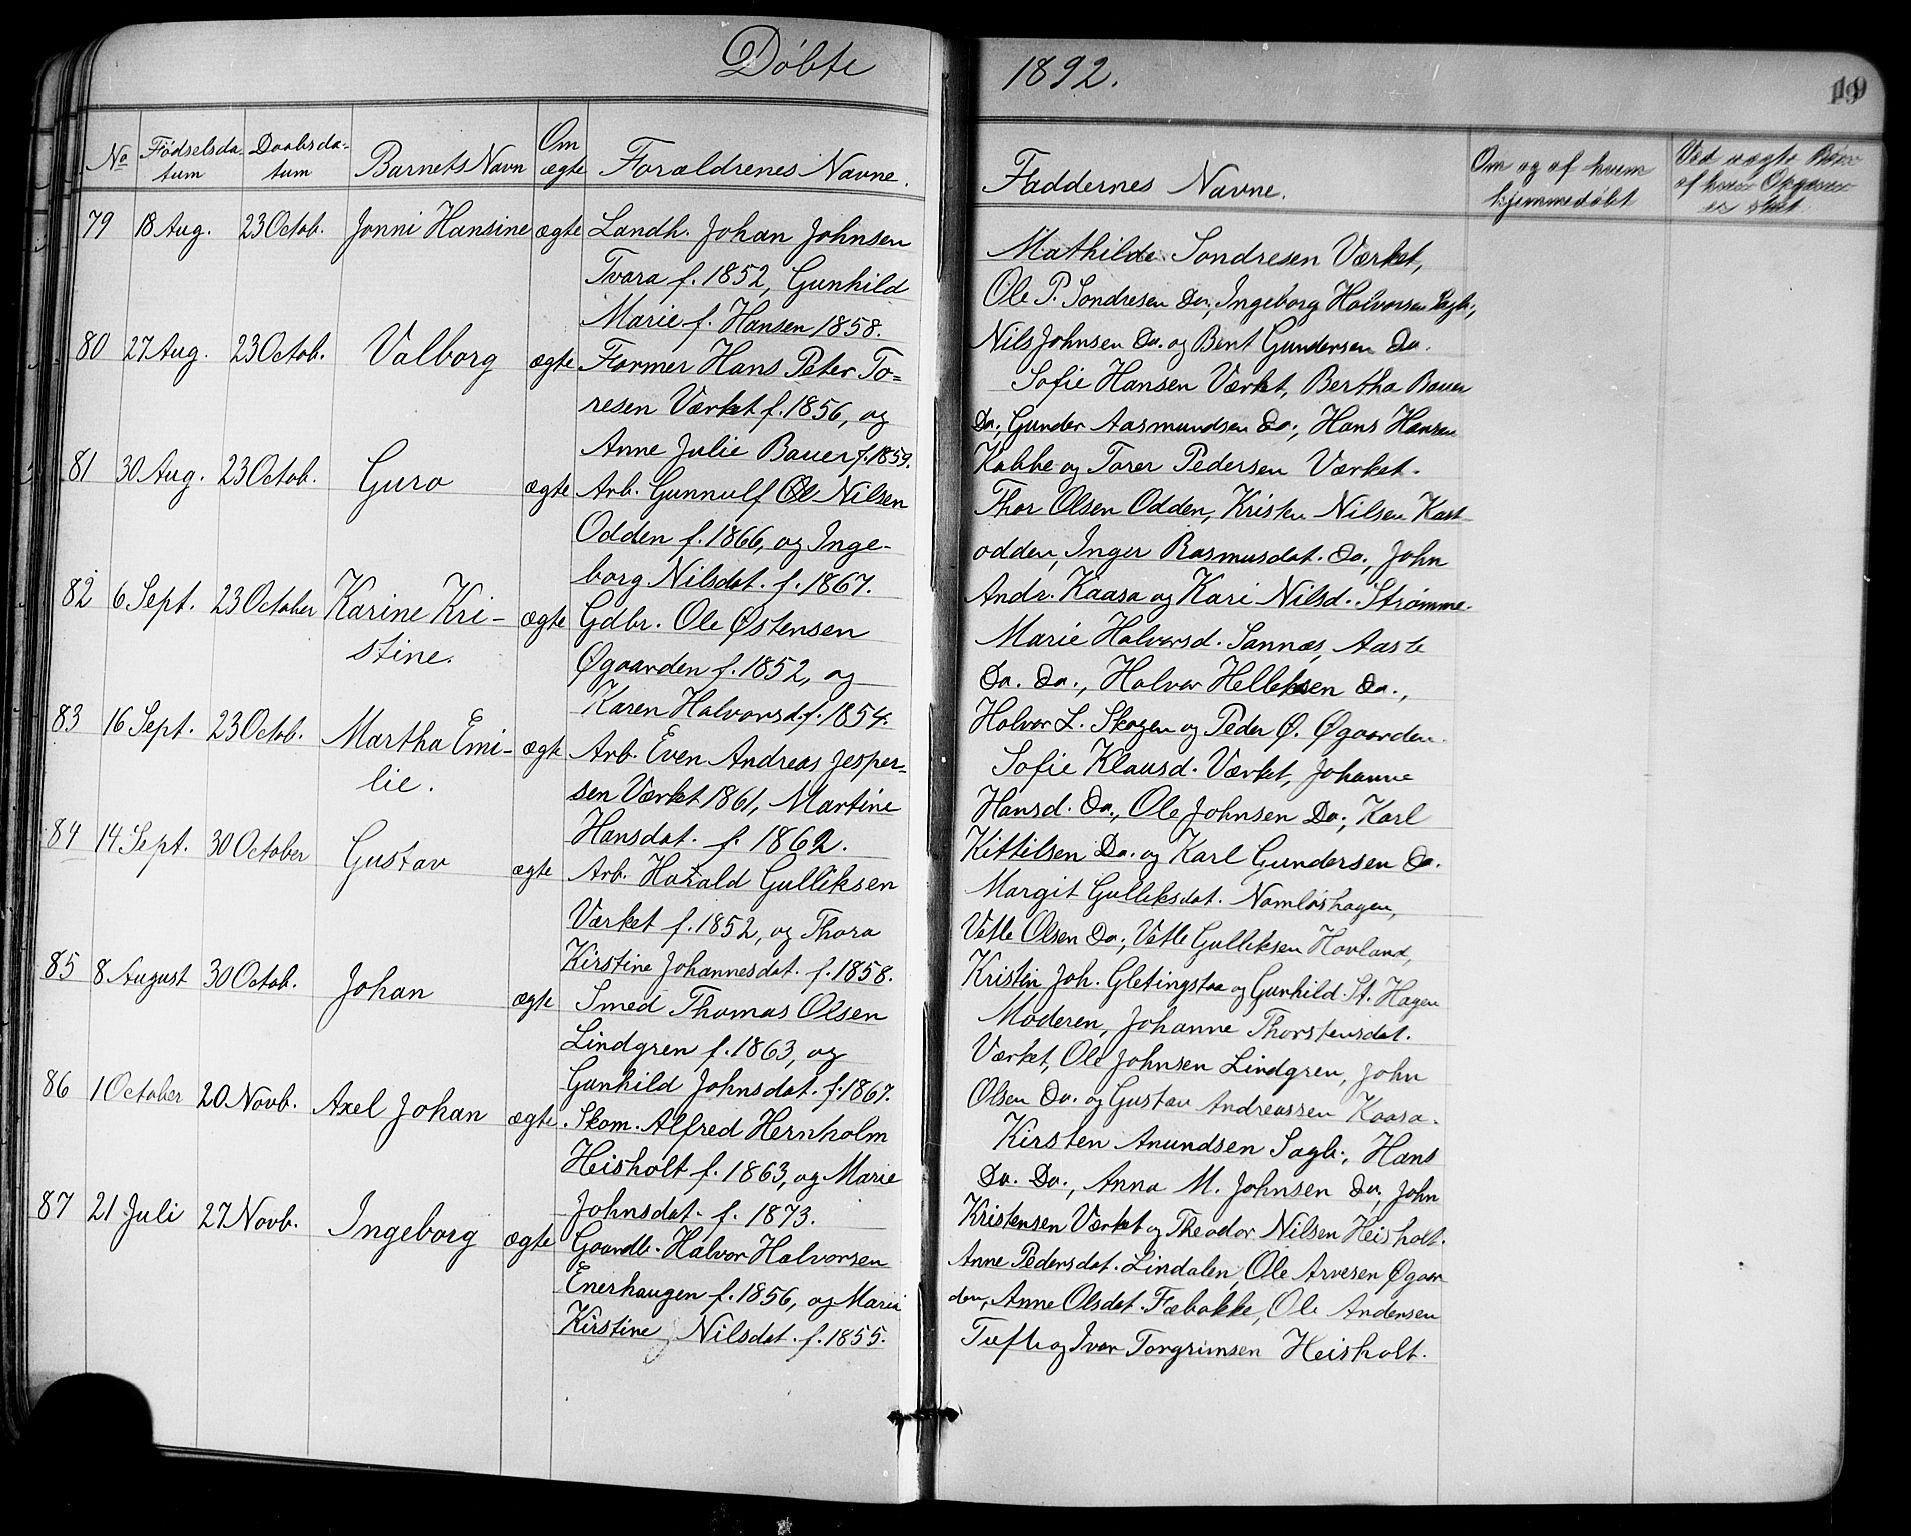 Döbte 1892.
19
No Fødselsdatum Daabsdatum Barnets Navn Om ægte Forældrenes Navne.
Faddernes Navne. Om og af hvem hjemmedøbt
79 18 Aug. 23 Octob. Jonni Hansine ægte Landh. Johan Johnsen
Tvara f. 1852, Gunhild
Marie f. Hansen 1858.
80 27 Aug. 23 Octob. Valborg ægte Former Hans Peter To=
resen Værket f. 1856, og
Anne Julie Bauer f. 1859.
81 30 Aug. 23 Octob. Guro ægte Arb. Gunnulf Ol Nilsen
Odden f. 1866, og Inge-
borg Nilsdat. f. 1867.
82 6 Sept. 23 October Karine Kri- ægte Gdbr. Ole Østensen
stine. Øgaarden f. 1852, og
Karen Halvorsd. f. 1854.
83 16 Sept. 23 Octob. Martha Emi- ægte Arb. Even Andreas Jesper=
lie. sen Værket 1861, Martine
Hansdat. f. 1862.
84 14 Sept. 30 October Gustav ægte Arb. Harald Gulliksen
Værket f. 1852, og Thora
Kirstine Johannesdat. f. 1858.
85 8 August 30 Octob. Johan ægte Smed Thomas Olsen
Lindgren f. 1863, og
Gunhild Johnsdat. f. 1867.
86 1 October 20 Novb. Axel Johan ægte Skom. Alfred Hernholm
Heisholt f. 1863, og Marie
Johnsdat. f. 1873.
87 21 Juli 27 Novb. Ingeborg ægte Gaardb. Halvor Halvorsen
Enerhaugen f. 1856, og Maria
Kirstine Nilsdat. f. 1855.
Mathilde Sondresen Værket,
Ole P. Sondresen Do., Ingeborg Halvorsen Sagb.,
Nils Johnsen Do. og Bent Gundersen Do.
Sofie Hansen Værket, Bertha Bauer
Do., Gunder Aasmundsen Do., Hans Hansen
Kabbe og Torer Pedersen Værket.
Thor Olsen Odden, Nilsen Kast
odden, Inger Rasmusdat. Do., John
Andr. Kaasa og Kari Nilsd. Strømme.
Marie Halvorsd. Sannæs, Aaste
Do. Do., Halvor Helleksen Do.,
Halvor L. Skogen og Peder Ø. Øgaarden.
Sofie Klausd. Værket, Johanne
Hansd. Do., Ole Johnsen Do., Karl
Kittilsen Do. og Karl Gundersen Do.
Margit Gulliksdat. Namløshagen,
Vetle Olsen Do., Vetle Gulliksen Hovland,
Kristin Joh. og Gunhild St. Hagen
Moderen, Johanne Thorstensdat.
Værket, Ole Johnsen Lindgren, John
Olsen Do. og Gustav Andreassen Kaasa.
Kirsten Anundsen Sagb., Hans
Do. Do., Anna M. Johnsen Do., John
Kristensen Værket og Theodor Nilsen Heisholt.
Anne Pedersdat. Lindalen, Ole Arvesen Øgaar
den, Anne Olsdat. Fæbakke, Ole Andersen
Tufte og Ivar Torgrimsen Heisholt.